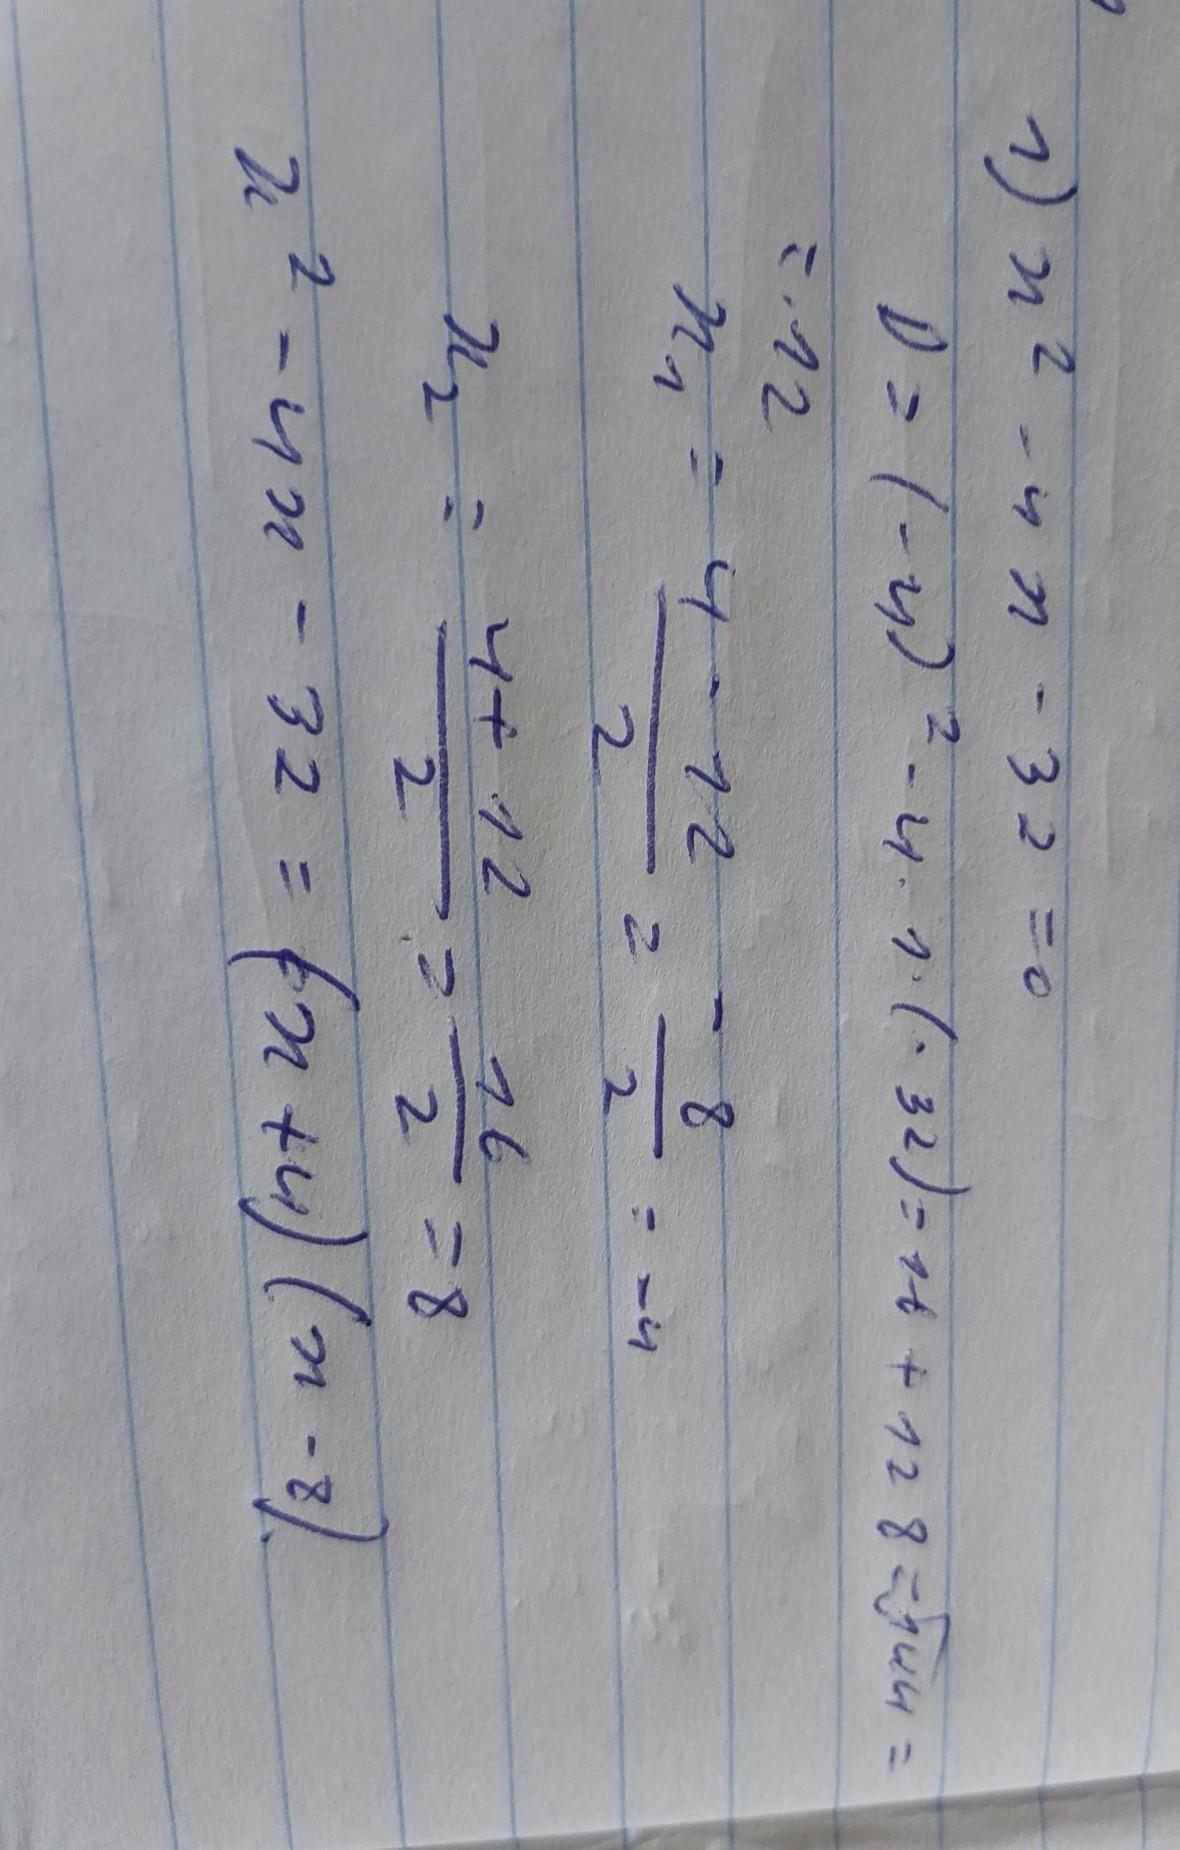 1) x² - 4x - 32 = 0
D = (-4)² - 4 · 1 · (-32) = 16 + 128 = √144 =
= 12
x₁ = (4 - 12)/2 = -8/2 = -4
x₂ = (4 + 12)/2 = 16/2 = 8
x² - 4x - 32 = (x + 4)(x - 8)